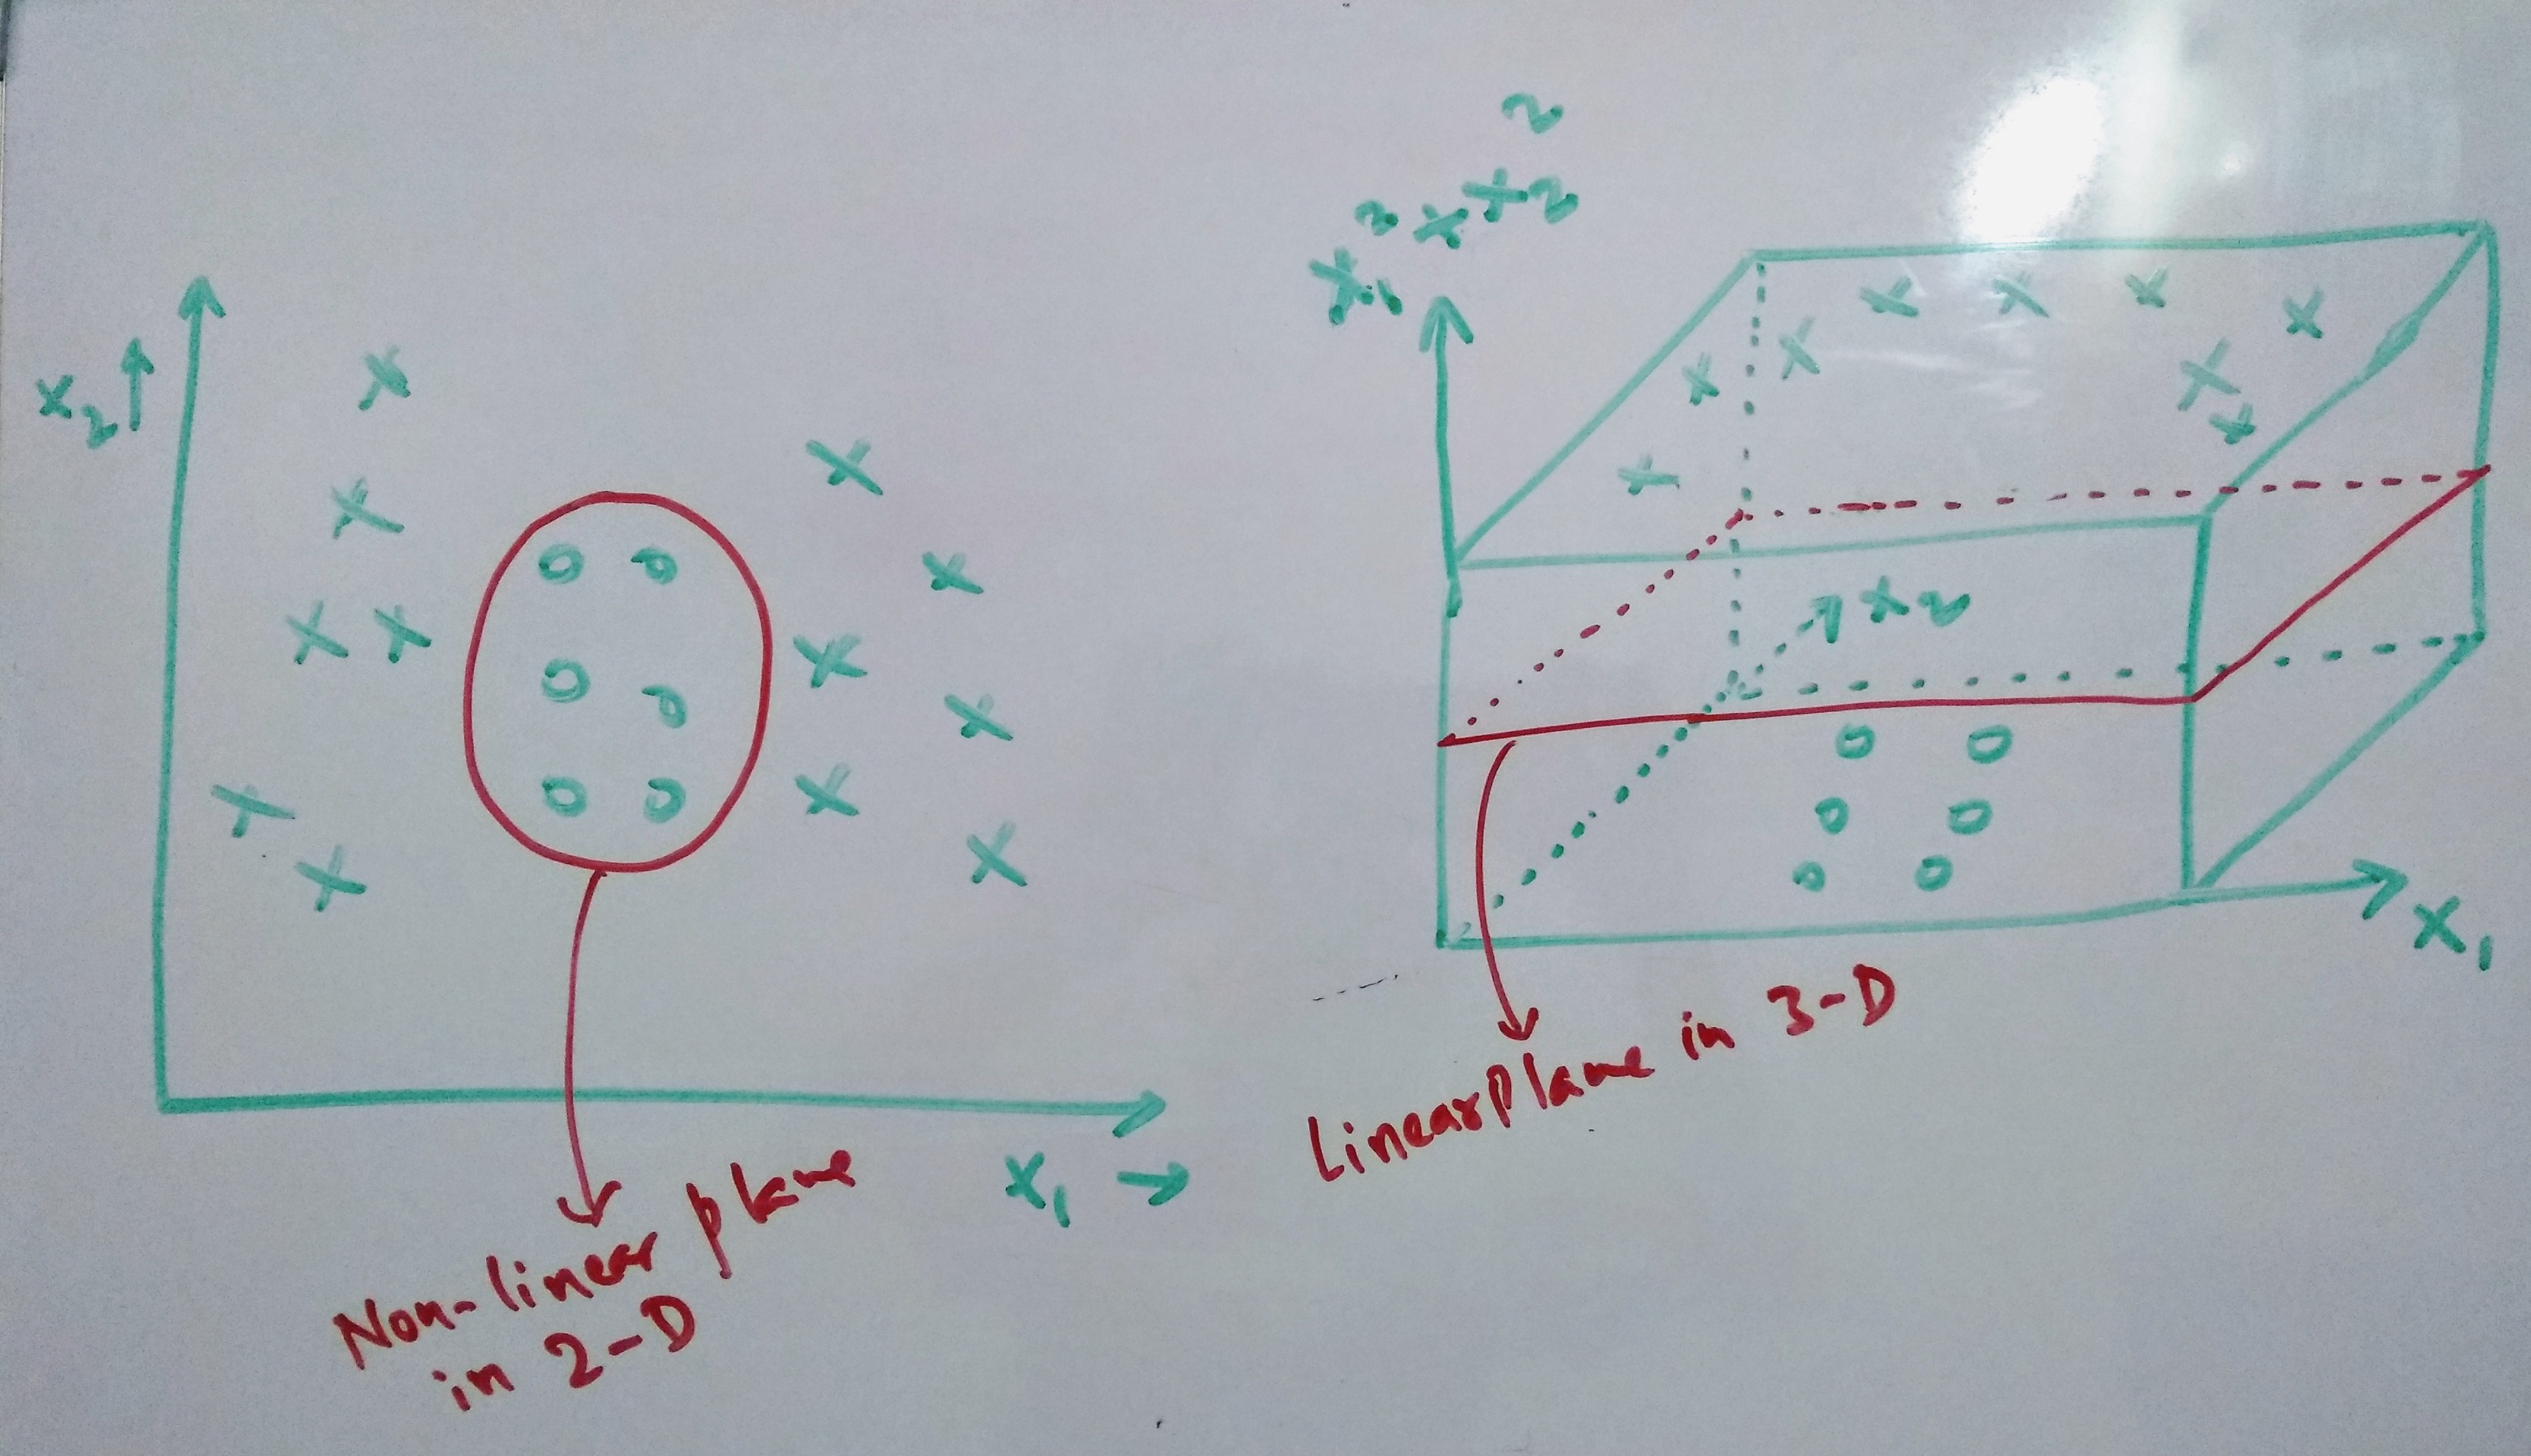 x₂ ↑
x₁ →
Non-linear plane
in 2-D
x₁² x x₂²
x₂
x₁
Linear Plane in 3-D